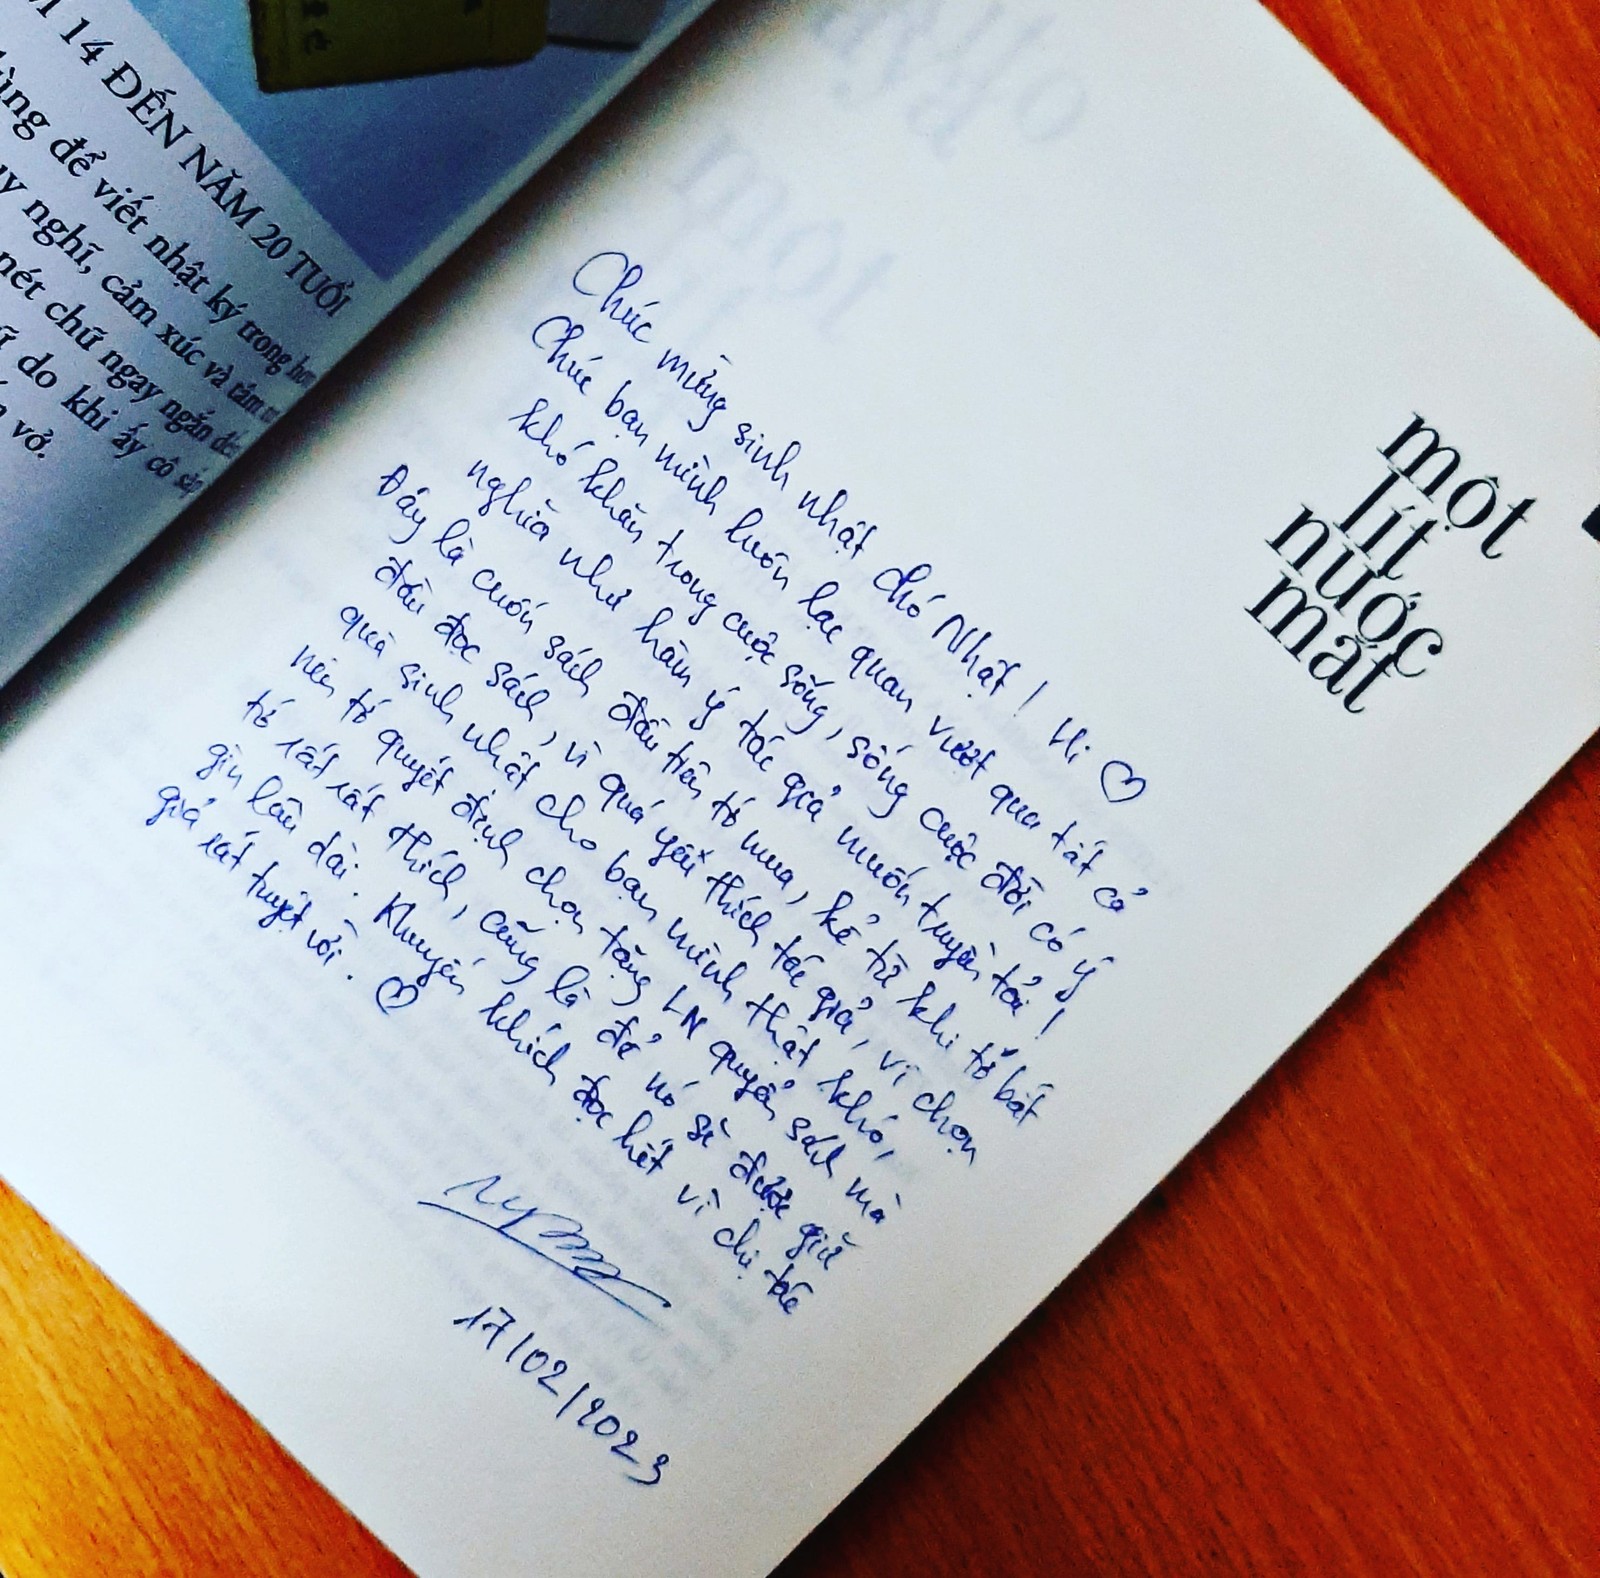 14 ĐẾN NĂM 20 TUỔI
để viết nhật ký trong
nghĩ, cảm xúc và tâm
nét chữ ngay ngắn
do khi ấy cô
vở.
Chúc mừng sinh nhật chó Nhật! Hi ♡
Chúc bạn mình luôn lạc quan vượt qua tất cả
khó khăn trong cuộc sống, sống cuộc đời có ý
nghĩa như hàm ý tác giả muốn truyền tải!
Đây là cuốn sách đầu tiên tớ mua, kể từ khi tớ bắt
đầu đọc sách, vì quá yêu thích tác giả, vì chọn
quà sinh nhật cho bạn mình thật khó,
nên tớ quyết định chọn tặng LN quyển sách mà
tớ rất rất thích, cũng là để nó sẽ được giữ
gìn lâu dài. Khuyến khích đọc hết vì chị tác
giả rất tuyệt vời. ♡
17/02/2023
một
lít
nước
mắt